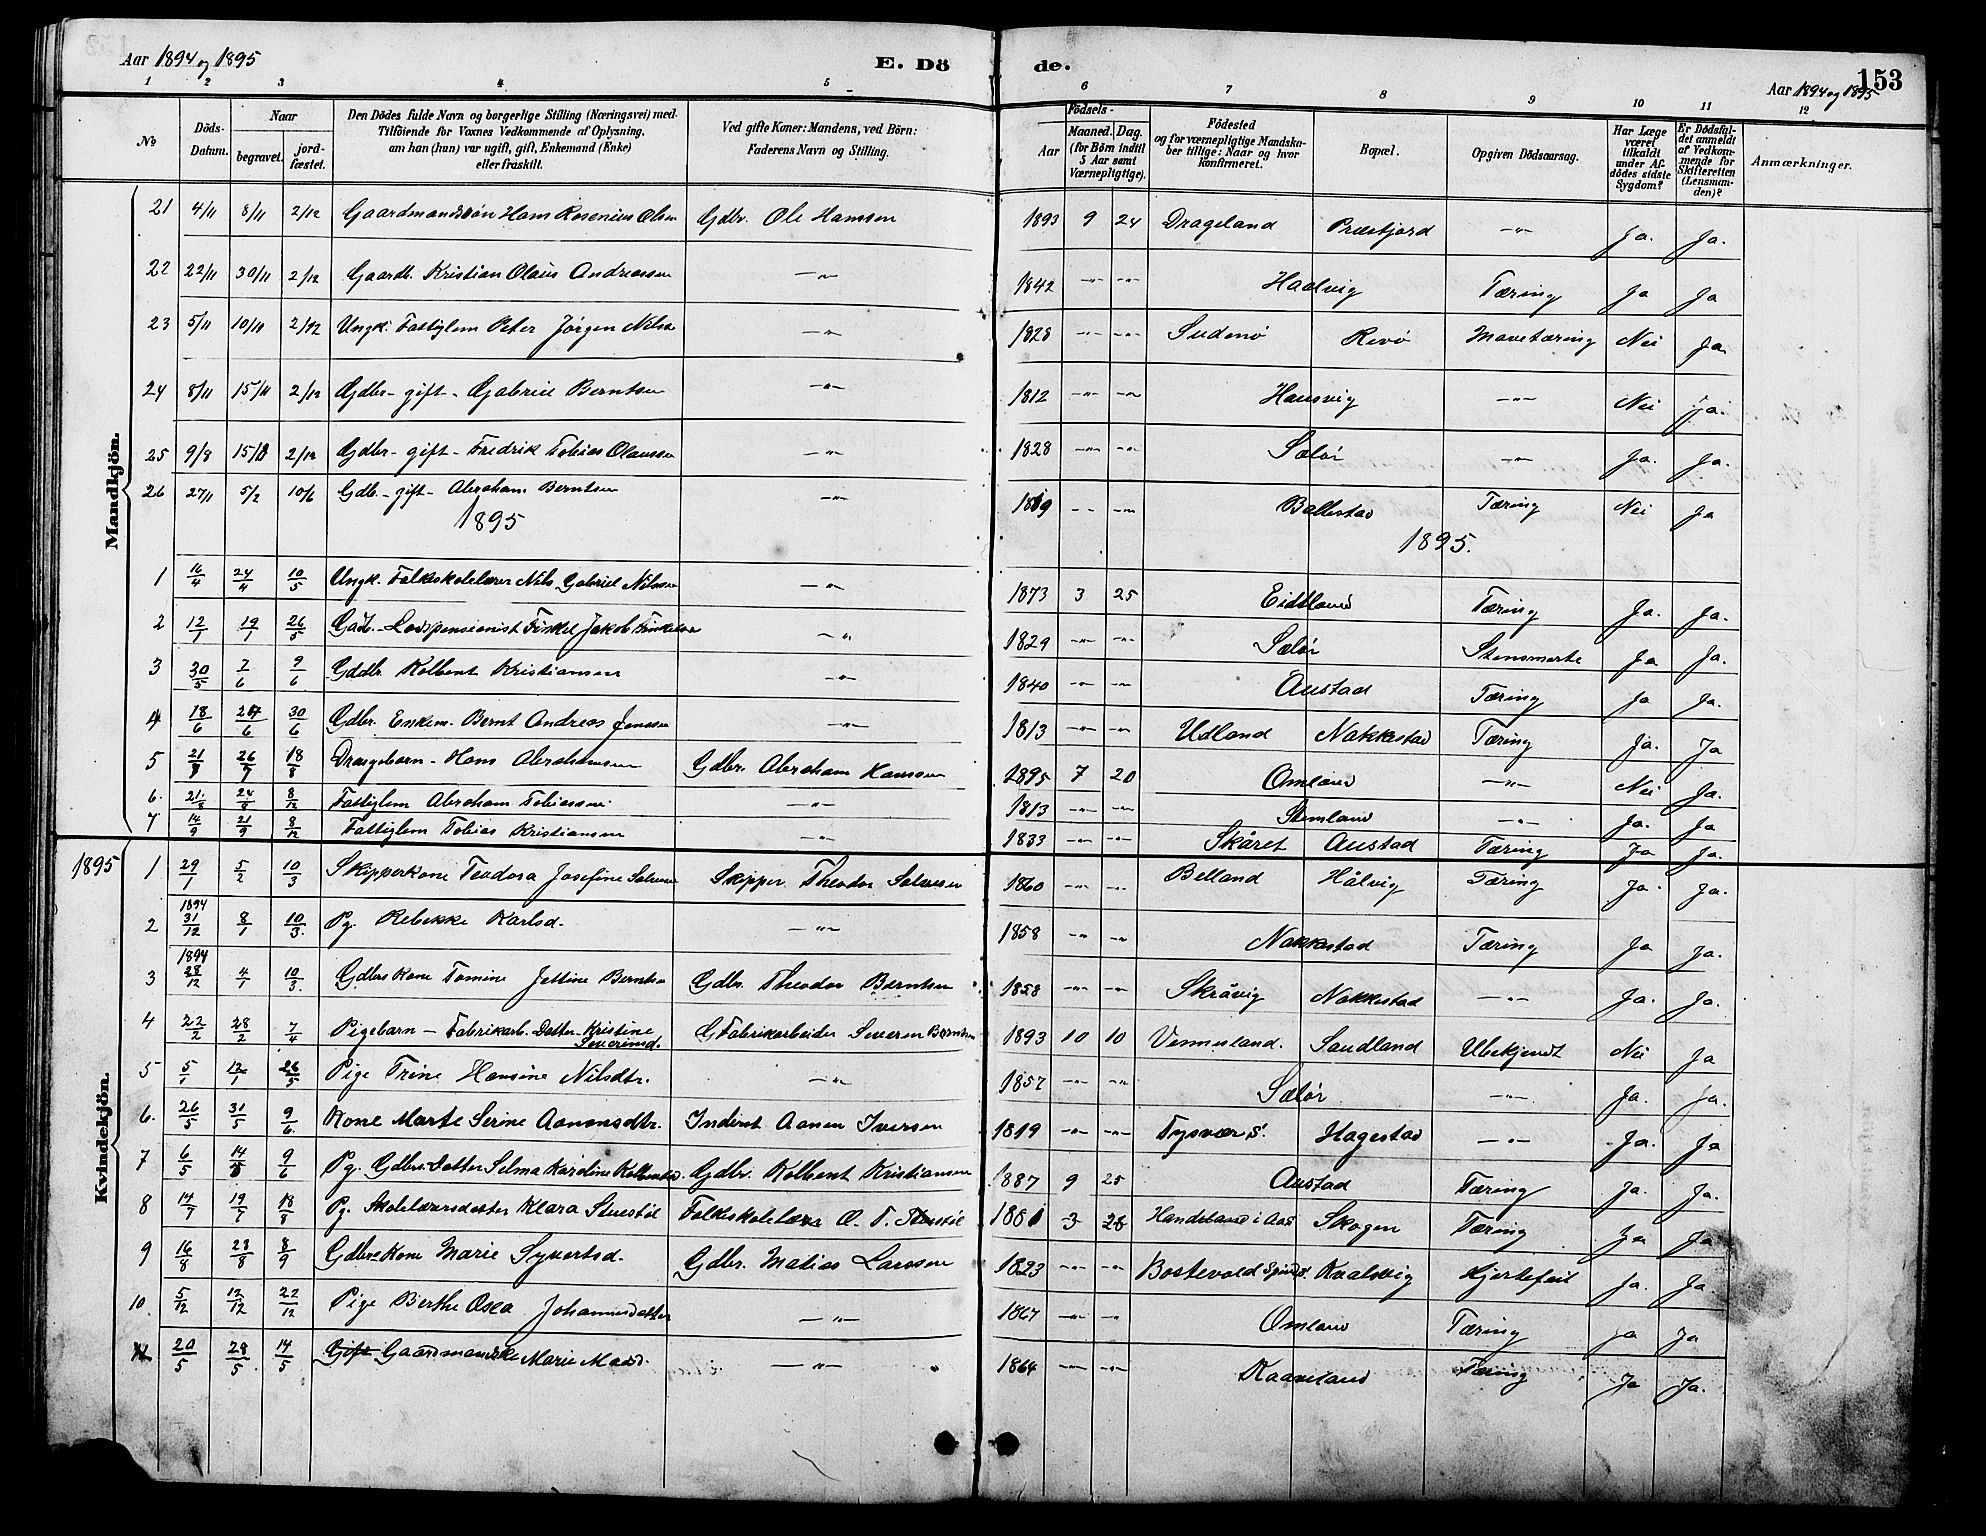 Aar 1894 og 1895 E. Dö de. Aar 1894 og 1895 153
1 2 3 4 5 6 7 8 9 10 11 12
No Döds-Datum. Naar begravet. jord-fæstet. Den Dödes fulde Navn og borgerlige Stilling (Næringsvei) med Tilföiende for Voxnes Vedkommende af Oplysning. am han (hun) var ugift, gift, Enkemand (Enke) eller fraskilt. Ved gifte Koner: Mandens, ved Börn: Faderens Navn og Stilling. Födsels- Aar Maaned. Dag. (for Börn indtil 5 Aar samt Værnepligtige). Födested og for værnepligtige Mandskaber tillige: Naar og hvor Konfirmeret. Bopæl. Opgiven Dödsaarsag. Har Læge været tilkaldt under Afdödes sidste Sygdom? Er Dödsfaldet anmeldt af Vedkommende for Skifteretten (Lensmanden)? Anmærkninger.
Mandkjön.
21 4/11 8/11 2/12 Gaardmandssön Hans Rosenius Olsen Gdbr. Ole Hansen 1893 9 24 Drageland Præstfjord -"- Ja. Ja.
22 22/11 30/11 2/12 Gaardb. Kristian Olaus Andreassen -"- 1842 -"- -"- Haalvig Tæring Ja Ja
23 5/11 10/11 2/12 Ungk. Fattiglem Peter Jørgen Nilsen -"- 1828 -"- -"- Sudenø Revø Mavetæring Nei Ja.
24 8/11 15/11 2/12 Gdbr- gift- Gabriel Berntsen -"- 1812 -"- -"- Hausvig -"- Nei Ja.
25 9/8 15/8 2/12 Gdbr- gift- Fredrik Tobias Olaussen -"- 1828 -"- -"- Sælør -"- Ja. Ja.
26 27/11 5/2 10/6 Gdb.- gift- Abraham Berntsen -"- 1819 -"- -"- Ballestad Tæring Nei Ja
1895 1895.
1 16/4 24/4 10/5 Ungk. Folkeskolelærer Nils Gabriel Nilssen -"- 1873 3 25 Eidsland Tæring Ja. Ja.
2 12/1 19/1 26/5 Gadb.- Lodspensionist Jakob -"- 1829 -"- -"- Sælør Stensmerte Ja Ja.
3 30/5 7/6 9/6 Gddbr. Kolbent Kristiansen -"- 1840 -"- -"- Austad Tæring Ja Ja.
4 18/6 /6 30/6 Gdbr. Enkem. Bernt Andreas Jenssen -"- 1813 -"- -"- Udland Nakkestad Tæring Ja. Ja
5 21/7 26/7 18/8 Drengebarn- Hans Abrahamsen Gdbr. Abraham Hanssen 1895 7 20 Omland -"- Nei Ja.
6. 21/8 24/8 8/12 Fattiglem Abraham Tobiassen -"- 1813 -"- -"- Stemland -"- Ja. Ja
7 14/9 21/9 8/12 Fattiglem Tobias Kristiansen -"- 1833 -"- -"- Skåret Austad Tæring Ja Ja.
Kvindekjön.
1895 1 29/1 5/2 10/3 Skipperkone Teodora Josefine Salvesen Skipper Theodor Salvesen 1860 -"- -"- Belland Hålvig Tæring Ja. Ja.
2 1894 31/12 8/1 10/3. Pg. Rebekke Karlsd. -"- 1858 -"- -"- Nakkestad Tæring Ja Ja.
3 1894 28/12 4/1 10/3. Gdbrs Kone Tomine Jettine Berntsen Gdbr. Theodor Berntsen 1858 -"- -"- Skråvig Nakkestad -"- Ja. Ja.
4 22/2 28/2 7/4 Pigebarn - Fabrikarb. Datter Kristine Severinsd. G Fabrikarbeider Severin Berntsen 1893 10 10 Vennesland. Sandland Ubekjendt Nei Ja
5 5/1 12/1 26/5 Pige Trine Hansine Nilsdtr. -"- 1857 -"- -"- Sælør -"- Ja. Ja.
6. 26/5 31/5 9/6. Kone Marte Serine Aanensdtr. Inderst Aanen Iversen 1819 -"- -"- Tysvær S. Hagestad -"- Ja. Ja
7 6/5 14/5 9/6 Pg. Gdbrs. Datter Selma Karoline Kolbentsd. Gdbr. Kolbent Kristiansen 1887 9 25 Austad Tæring Ja. Ja.
8 14/7 19/7 18/8 Pg. Skolelærersdatter Klara Stuestöl Folkeskolelærer O. T. Stuestöl 3 28 Handeland i Aas Skogen Tæring Ja Ja
9 16/8 23/8 8/9 Gdbrs Kone Marie Syvertsd. Gdbr. Matias Larssen 1823 -"- -"- Bostevold Spinds. Kvalsvig Hjertefeil Ja. Ja.
10. 5/12 12/12 22/12 Pige Berthe Osea Johannesdatter -"- 1867 -"- -"- Omland Tæring Ja Ja
11 20/5 28/5. 14/5 Gift Gaardmandske Marie Madsd. -"- 1864 -"- -"- Kaaveland Tæring Ja Ja.